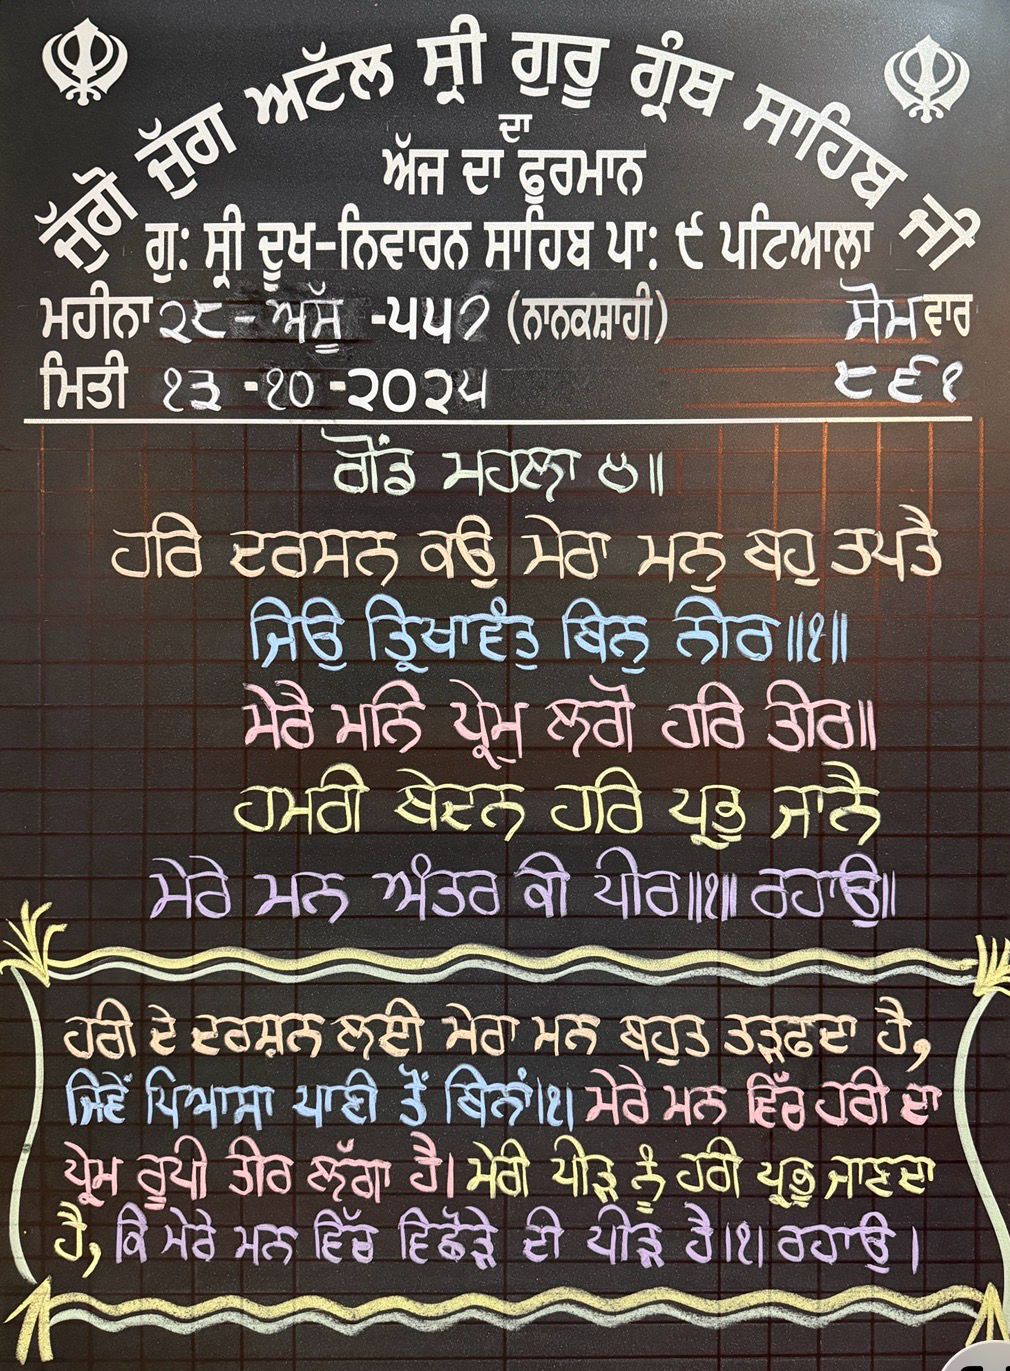 ਜੁੱਗੋ ਜੁੱਗ ਅਟੱਲ ਸ੍ਰੀ ਗੁਰੂ ਗ੍ਰੰਥ ਸਾਹਿਬ ਜੀ
ਦਾ
ਅੱਜ ਦਾ ਫੁਰਮਾਨ
ਗੁ: ਸ੍ਰੀ ਦੂਖ-ਨਿਵਾਰਨ ਸਾਹਿਬ ਪਾ: ੯ ਪਟਿਆਲਾ
ਮਹੀਨਾ ੨੮- ਅੱਸੂ -੫੫੭ (ਨਾਨਕਸ਼ਾਹੀ) ਸੋਮਵਾਰ
ਮਿਤੀ ੧੩ -੧੦ -੨੦੨੫ ੮੬੧
ਗੋਂਡ ਮਹਲਾ ੪॥
ਹਰਿ ਦਰਸਨ ਕਉ ਮੇਰਾ ਮਨੁ ਬਹੁ ਤਪਤੈ
ਜਿਉ ਤ੍ਰਿਖਾਵੰਤੁ ਬਿਨੁ ਨੀਰ॥੧॥
ਮੇਰੈ ਮਨਿ ਪ੍ਰੇਮੁ ਲਗੋ ਹਰਿ ਤੀਰ॥
ਹਮਰੀ ਬੇਦਨ ਹਰਿ ਪ੍ਰਭੁ ਜਾਨੈ
ਮੇਰੇ ਮਨ ਅੰਤਰ ਕੀ ਪੀਰ॥੧॥ ਰਹਾਉ॥
ਹਰੀ ਦੇ ਦਰਸ਼ਨ ਲਈ ਮੇਰਾ ਮਨ ਬਹੁਤ ਤੜਫਦਾ ਹੈ,
ਜਿਵੇਂ ਪਿਆਸਾ ਪਾਣੀ ਤੋਂ ਬਿਨਾਂ।੧। ਮੇਰੇ ਮਨ ਵਿੱਚ ਹਰੀ ਦਾ
ਪ੍ਰੇਮ ਰੂਪੀ ਤੀਰ ਲੱਗਾ ਹੈ। ਮੇਰੀ ਪੀੜ ਨੂੰ ਹਰੀ ਪ੍ਰਭੂ ਜਾਣਦਾ
ਹੈ, ਕਿ ਮੇਰੇ ਮਨ ਵਿੱਚ ਵਿਛੋੜੇ ਦੀ ਪੀੜ ਹੈ।੧। ਰਹਾਉ।